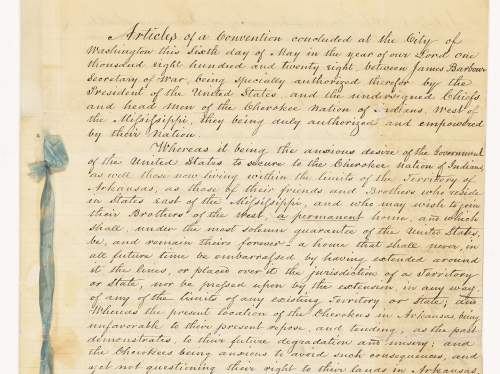 Articles of a Convention concluded at the City of
Washington this Sixth day of May in the year of our Lord one
thousand eight hundred and twenty eight, between James Barbour
Secretary of War, being specially authorized therefor by the
President of the United States, and the undersigned Chiefs
and head men of the Cherokee Nation of Indians, West of
the Mississippi, they being duly authorized and empowered
by their Nation.
Whereas it being the anxious desire of the Government
of the United States to secure to the Cherokee nation of Indians,
as well those now living within the limits of the Territory of
Arkansas, as those of their friends and Brothers who reside
in States East of the Mississippi, and who may wish to join
their Brothers of the West, a permanent home, and which
shall, under the most solemn guarantee of the United States,
be, and remain theirs forever - a home that shall never, in
all future time be embarrassed by having extended around
it the lines, or placed over it the jurisdiction of a Territory
or State, nor be pressed upon by the extension, in any way,
of any of the limits of any existing Territory or State; and
Whereas the present location of the Cherokees in Arkansas being
unfavorable to their present repose, and tending, as the past
demonstrates, to their future degradation and misery; and
the Cherokees being anxious to avoid such consequences, and
yet not questioning their right to their lands in Arkansas,